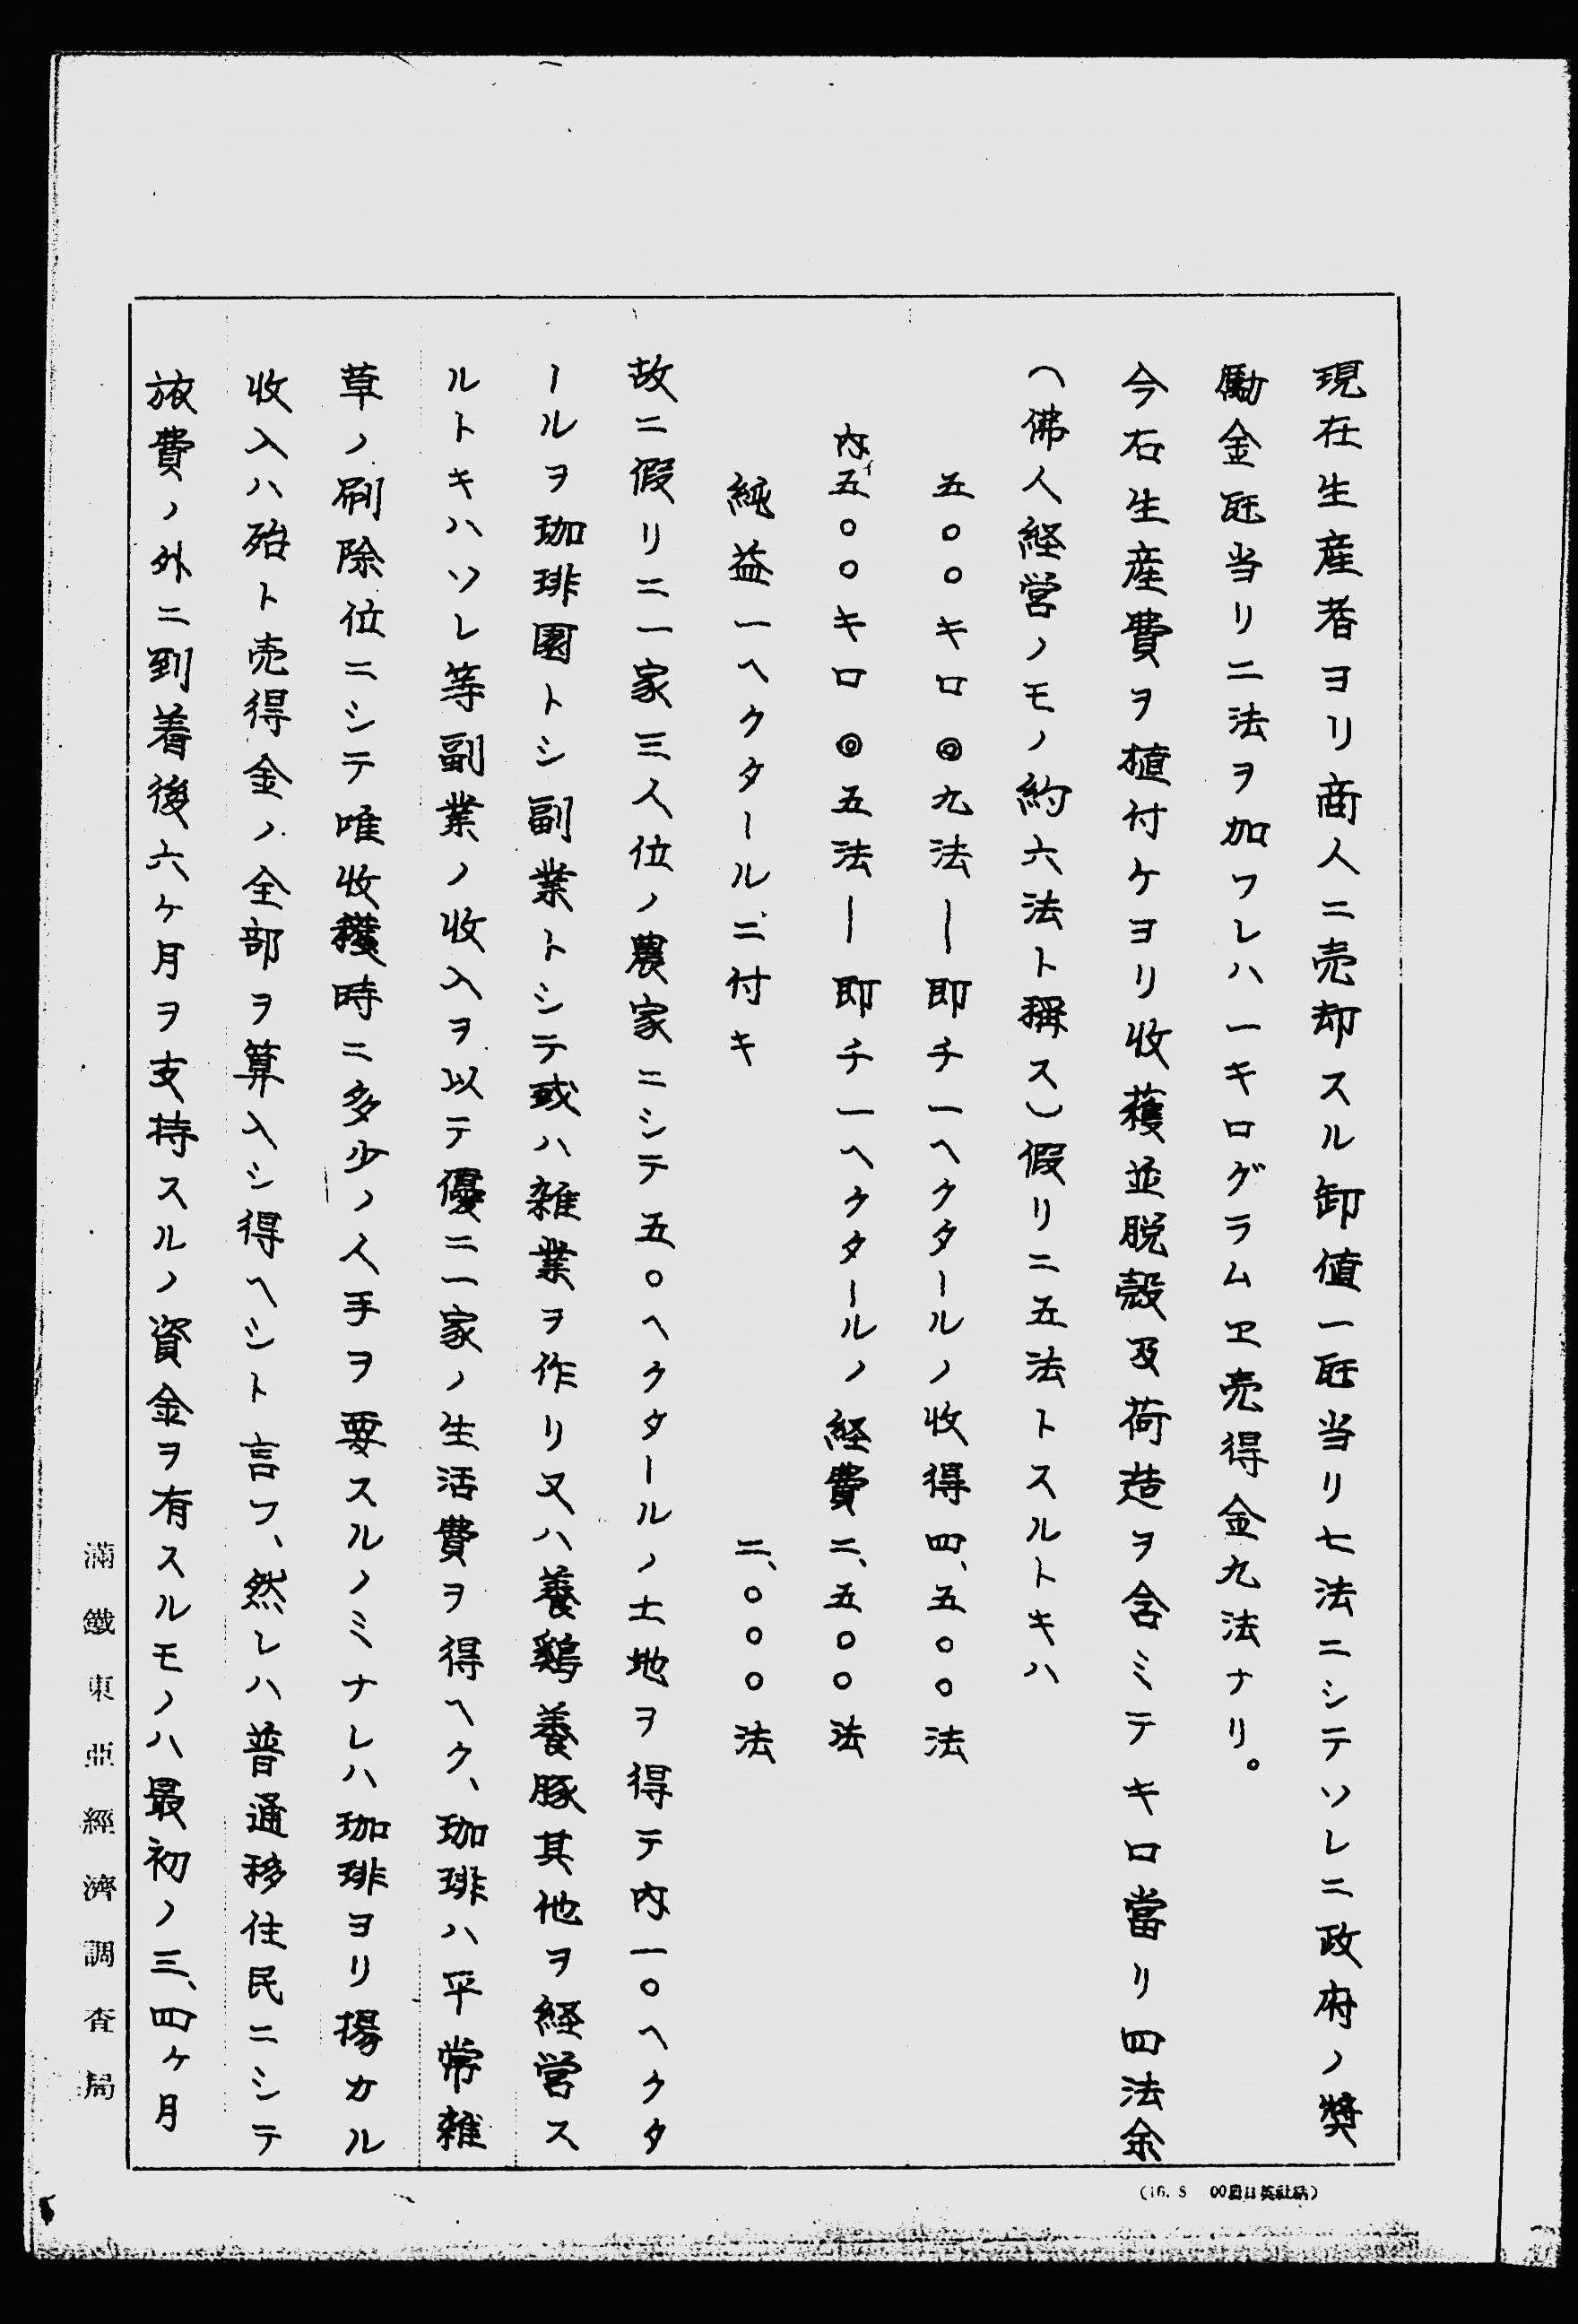 現在生産者ヨリ商人ニ売却スル卸値一瓩当リ七法ニシテソレニ政府ノ奨
励金瓩当リ二法ヲ加フレハ一キログラムヱ売得金九法ナリ。
今右生産費ヲ植付ケヨリ收獲並脱殻及荷造ヲ含ミテキロ當リ四法余
(佛人経営ノモノ約六法ト稱ス)假リニ五法トスルトキハ
五〇〇キロ◎九法―即チ一ヘクタールノ收得四、五〇〇法
内五〇〇キロ◎五法―即チ一ヘクタールノ経費二、五〇〇法
純益一ヘクタールニ付キ 二、〇〇〇法
故ニ假リニ一家三人位ノ農家ニシテ五〇ヘクタールノ土地ヲ得テ内一〇ヘクタ
ールヲ珈琲園トシ副業トシテ或ハ雑業ヲ作リ又ハ養鶏養豚其他ヲ経営ス
ルトキハソレ等副業ノ收入ヲ以テ優ニ一家ノ生活費ヲ得ヘク、珈琲ハ平常雑
草ノ刷除位ニシテ唯收穫時ニ多少ノ人手ヲ要スルノミナレハ珈琲ヨリ揚カル
收入ハ殆ト売得金ノ全部ヲ算入シ得ヘシト言フ、然レハ普通移住民ニシテ
旅費ノ外ニ到着後六ヶ月ヲ支持スルノ資金ヲ有スルモノハ最初ノ三、四ヶ月
滿鐵東亞經濟調査局